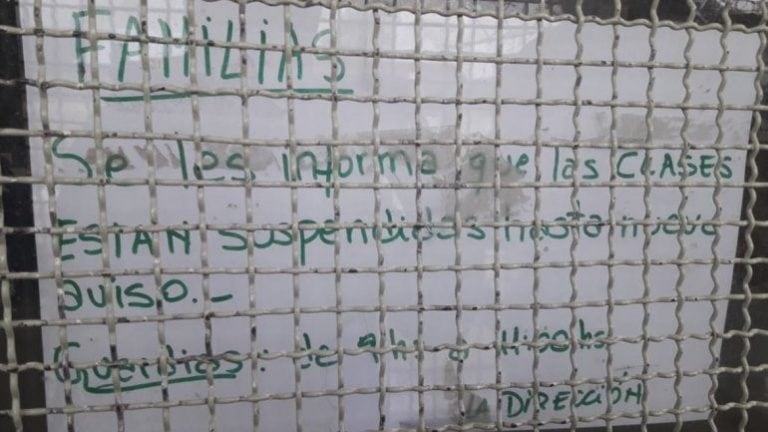 FAMILIAS
Se les informa que las CLASES
ESTAN suspendidas hasta nuevo
aviso.-
Guardias: de 9hs a
LA DIRECCIÓN